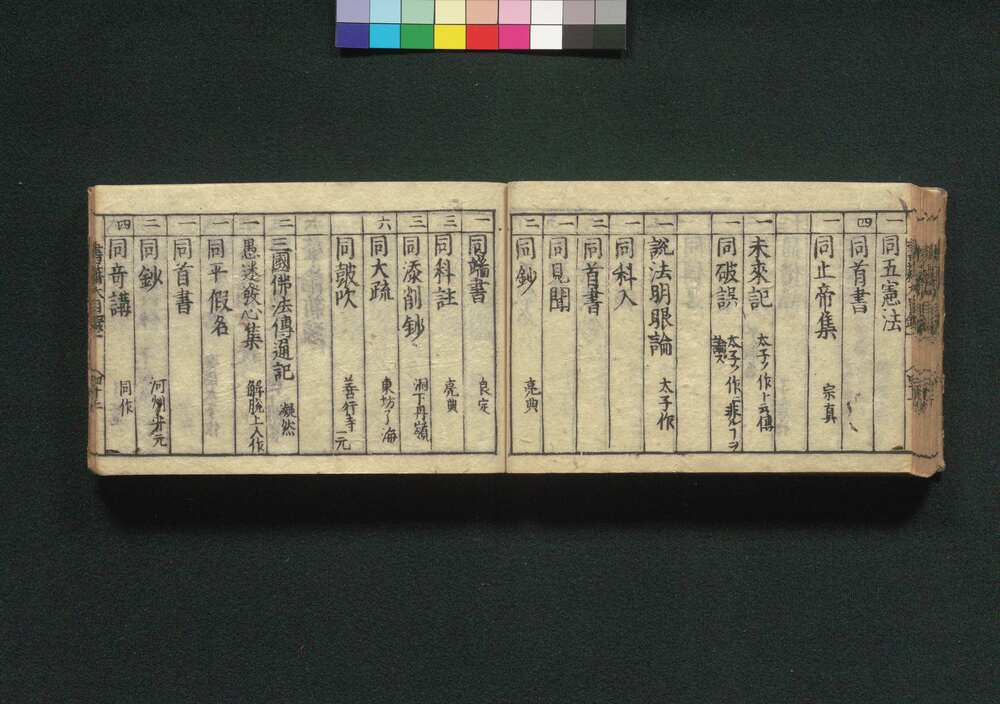 一 同五憲法
四 同首書
一 同止帝集 宗真
一 未來記 太子ノ作ト云傳
一 同破誤 太子ノ作ニ非ルフヲ論ス
一 說法明眼論 太子作
一 同科入
三 同首書
一 同見聞
二 同鈔 亮典
一 同端書 良定
三 同科註 亮典
三 同添削鈔 洞下丹嶺
六 同大疏 東坊了海
同皷吹 善行寺一元
二 三國佛法傳通記 凝然
一 愚迷發心集 解脫上人作
一 同平假名
一 同首書
二 同鈔 河州元
四 同奇講 同作